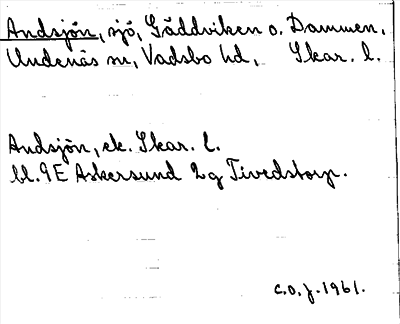 Andsjön, sjö, Gäddviken o. Dammen,
Undenäs sn, Vadsbo hd, Skar. l.
Andsjön, ek. Skar. l.
bl. 9E Askersund 2g Tivedstorp.
c.o.j. 1961.